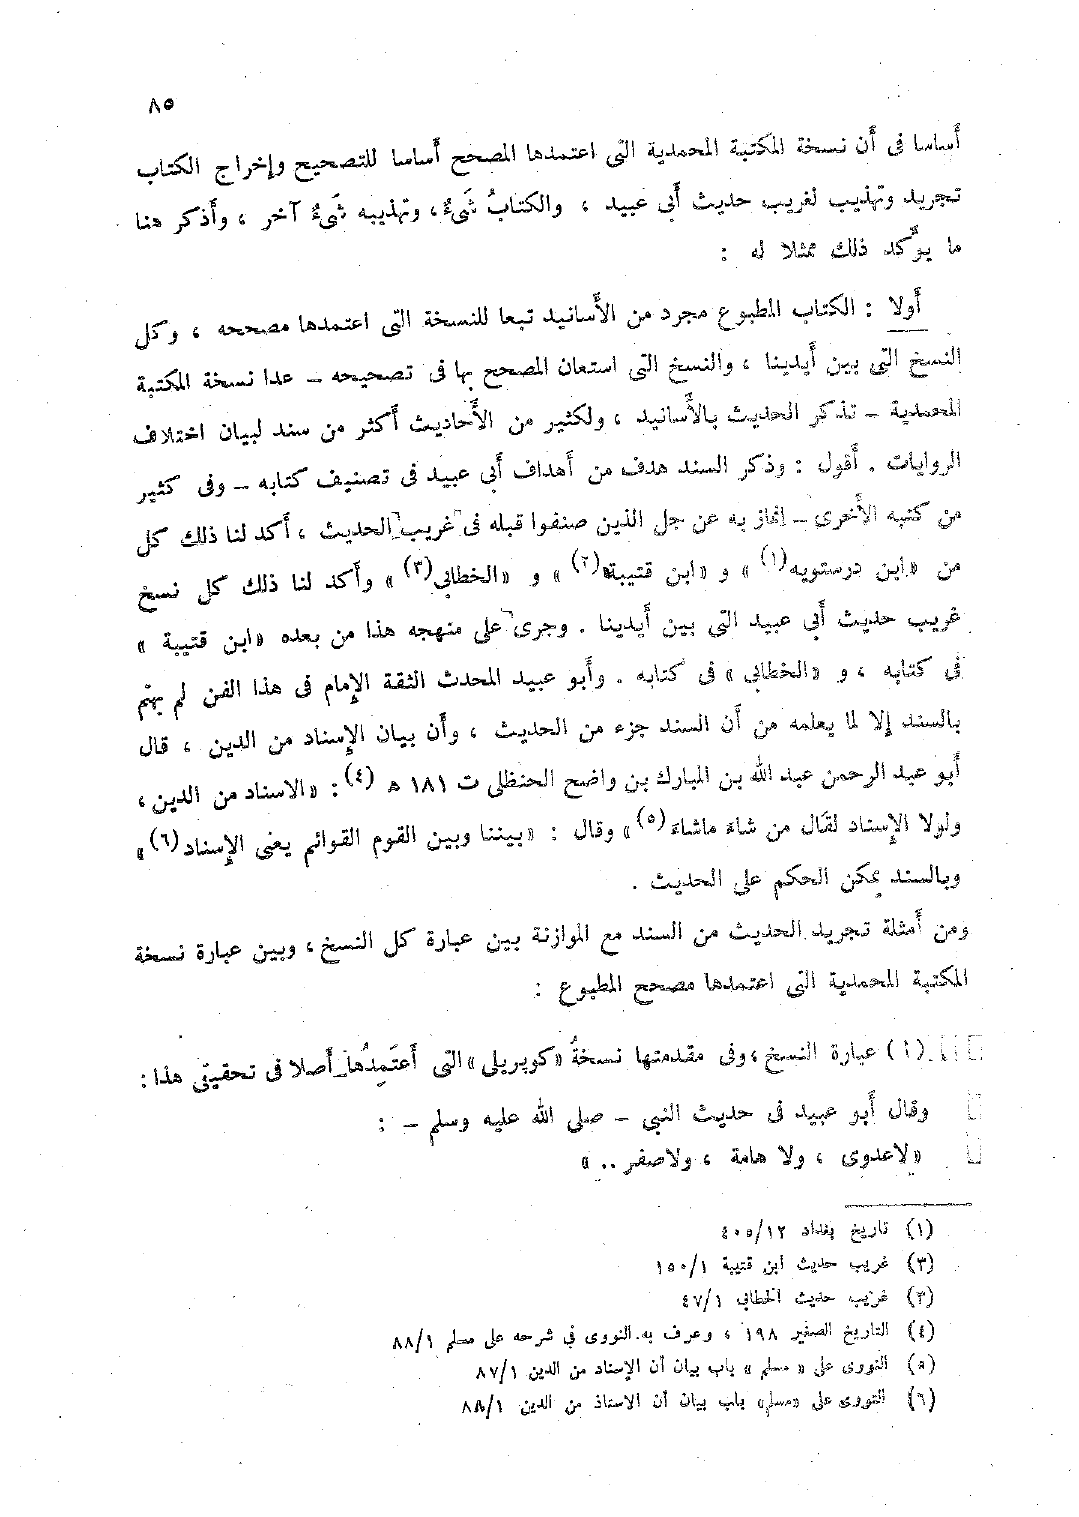 ٨٥
أساسا فى أن نسخة المكتبة المحمدية التى اعتمدها المصحح أساسا للتصحيح وإخراج الكتاب
تجريد وتهذيب لغريب حديث أبي عبيد ، والكتابُ شَىءٌ، وتهذيبه شَىءٌ آخر ، وأذكر هنا
ما يؤكد ذلك ممثلا له :
أولا : الكتاب المطبوع مجرد من الأسانيد تبعا للنسخة التى اعتمدها مصححه ، وكل
النسخ التى بين أيدينا ، والنسخ التى استعان المصحح بها فى تصحيحه – عدا نسخة المكتبة
المحمدية – تذكر الحديث بالأسانيد ، ولكثير من الأحاديث أكثر من سند لبيان اختلاف
الروايات . أقول : وذكر السند هدف من أهداف أبي عبيد فى تصنيف كتابه – وفى كثير
من كتبه الأخرى – امتاز به عن جل الذين صنفوا قبله فى غريب الحديث ، أكد لنا ذلك كل
من «ابن درستويه(١)» و «ابن قتيبة(٢)» و «الخطابي(٣)» وأكد لنا ذلك كل نسخ
غريب حديث أبي عبيد التى بين أيدينا . وجرى على منهجه هذا من بعده «ابن قتيبة »
فى كتابه ، و «الخطابي » فى كتابه . وأبو عبيد المحدث الثقة الإمام فى هذا الفن لم يهتم
بالسند إلا لما يعلمه من أن السند جزء من الحديث ، وأن بيان الإسناد من الدين ، قال
أبو عبد الرحمن عبد الله بن المبارك بن واضح الحنظلى ت ١٨١ ه (٤) : «الاسناد من الدين ،
ولولا الإسناد لقال من شاءَ ماشاءَ(٥)» وقال : «بيننا وبين القوم القوائم يعنى الإسناد(٦)»
وبالسند يمكن الحكم على الحديث .
ومن أمثلة تجريد الحديث من السند مع الموازنة بين عبارة كل النسخ ، وبين عبارة نسخة
المكتبة المحمدية التى اعتمدها مصحح المطبوع :
(أ) عبارة النسخ ، وفى مقدمتها نسخةُ «كوبريلى» التى أعتَمِدُها أصلا فى تحقيقى هذا :
وقال أبو عبيد فى حديث النبي – صلى الله عليه وسلم – :
«لاعدوى ، ولا هامة ، ولاصفر .. »
(١) تاريخ بغداد ٤٠٥/١٢
(٣) غريب حديث ابن قتيبة ١٥٠/١
(٣) غريب حديث الخطابي ٤٧/١
(٤) التاريخ الصغير ١٩٨ ، وعرف به النووى فى شرحه على مسلم ٨٨/١
(٥) النووى على « مسلم » باب بيان أن الإسناد من الدين ٨٧/١
(٦) النووى على «مسلم» باب بيان أن الاسناد من الدين ٨٨/١